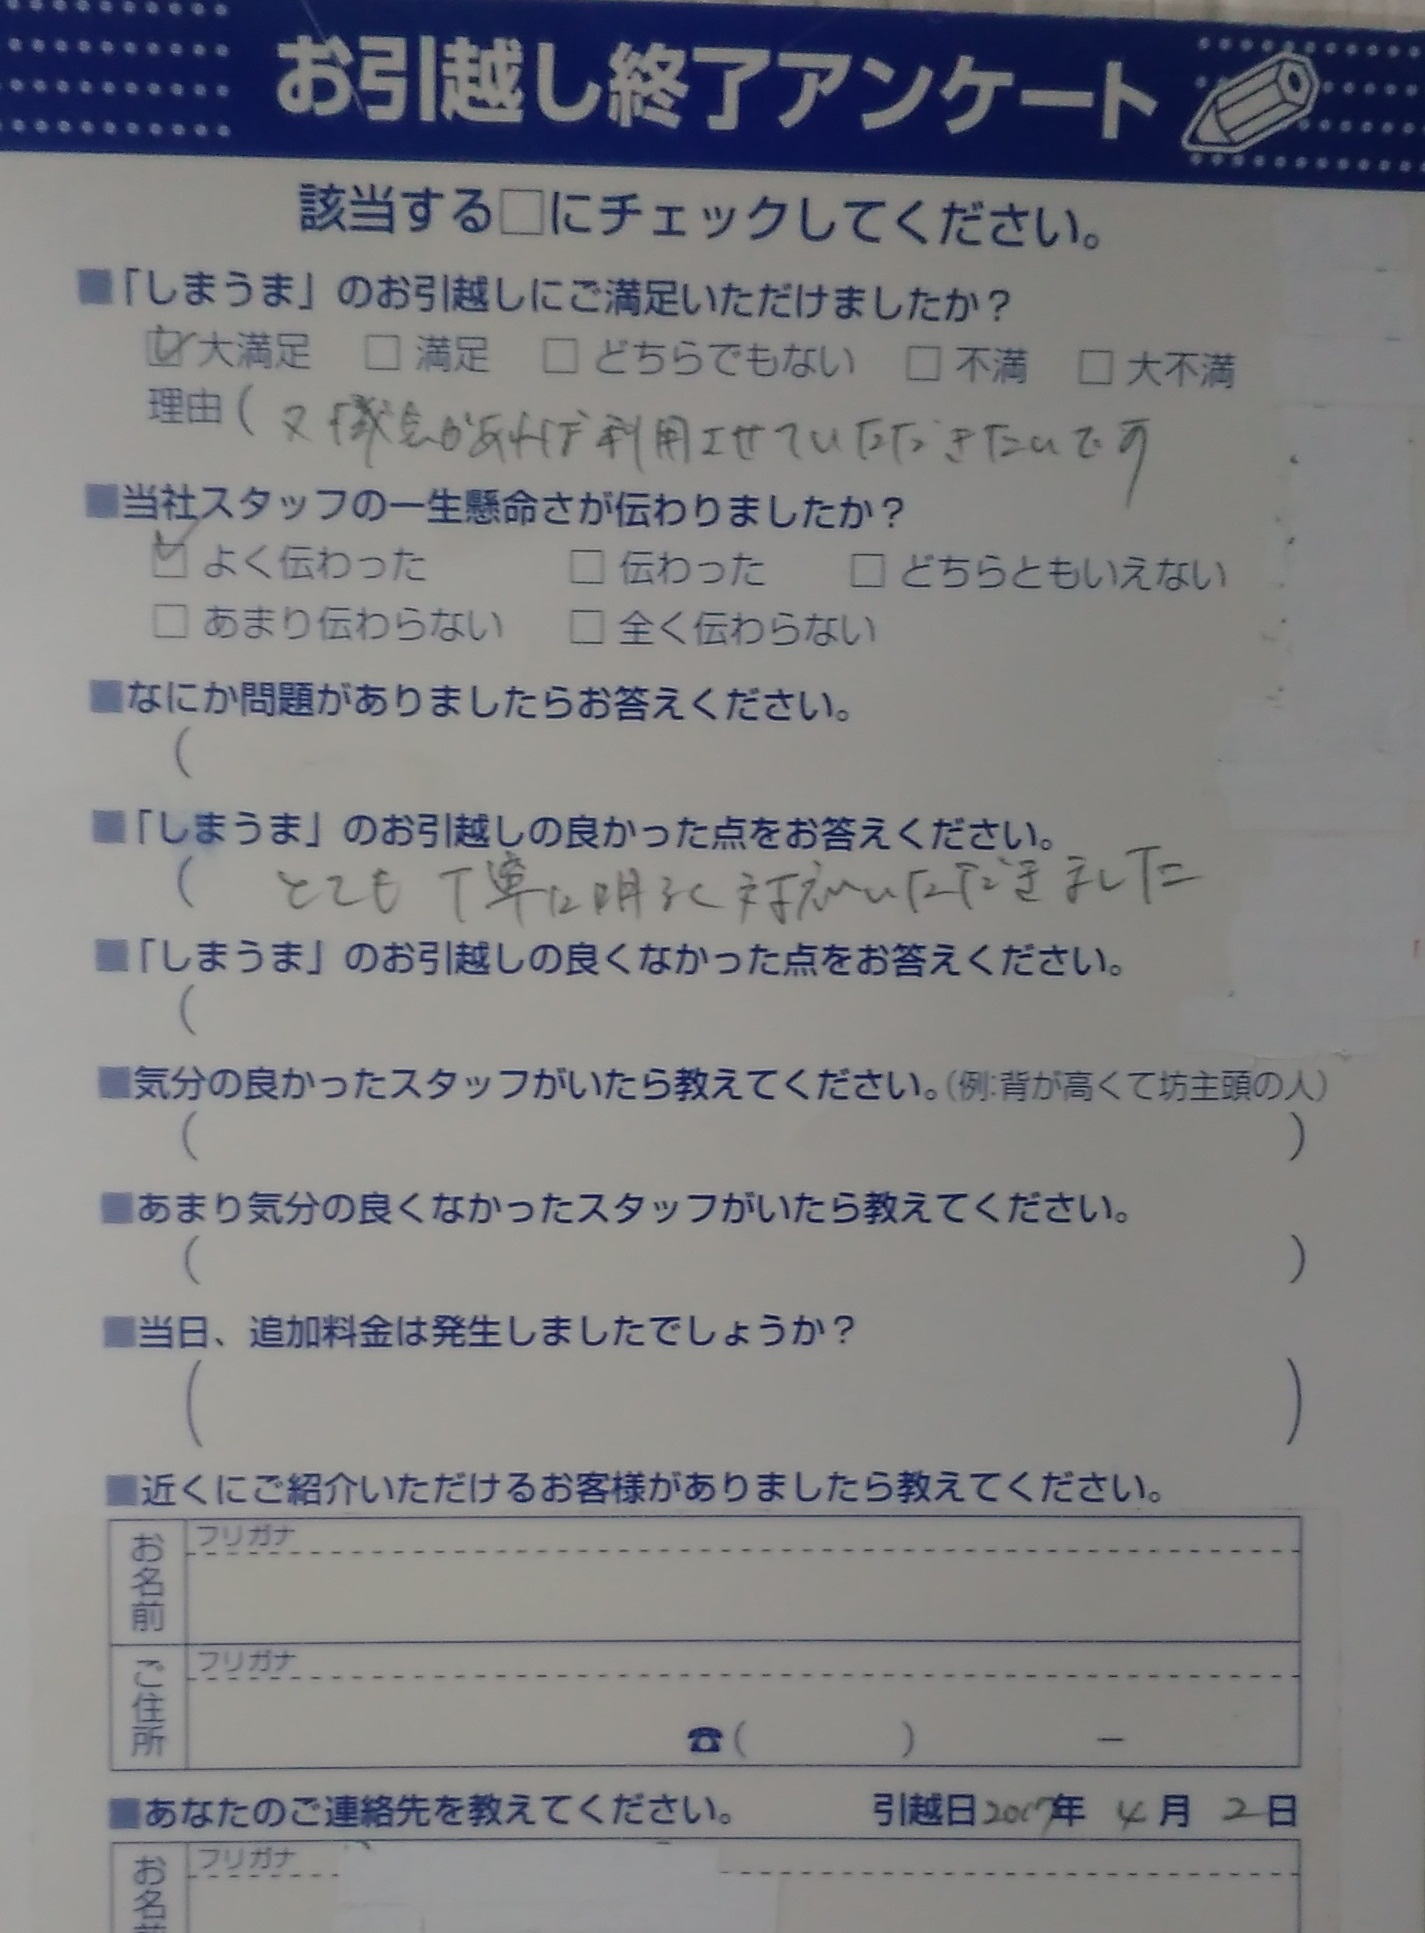 お引越し終了アンケート
該当する□にチェックしてください。
■「しまうま」のお引越しにご満足いただけましたか？
☑大満足 □満足 □どちらでもない □不満 □大不満
理由( 又機会があれば利用させていただきたいです
■当社スタッフの一生懸命さが伝わりましたか？
☑よく伝わった □伝わった □どちらともいえない
□あまり伝わらない □全く伝わらない
■なにか問題がありましたらお答えください。
(
■「しまうま」のお引越しの良かった点をお答えください。
( とても丁寧に明るく対応いただきました
■「しまうま」のお引越しの良くなかった点をお答えください。
(
■気分の良かったスタッフがいたら教えてください。(例:背が高くて坊主頭の人)
( )
■あまり気分の良くなかったスタッフがいたら教えてください。
( )
■当日、追加料金は発生しましたでしょうか？
( )
■近くにご紹介いただけるお客様がありましたら教えてください。
お名前 フリガナ
ご住所 フリガナ
☎( ) −
■あなたのご連絡先を教えてください。 引越日2017年 4月 2日
お名前 フリガナ